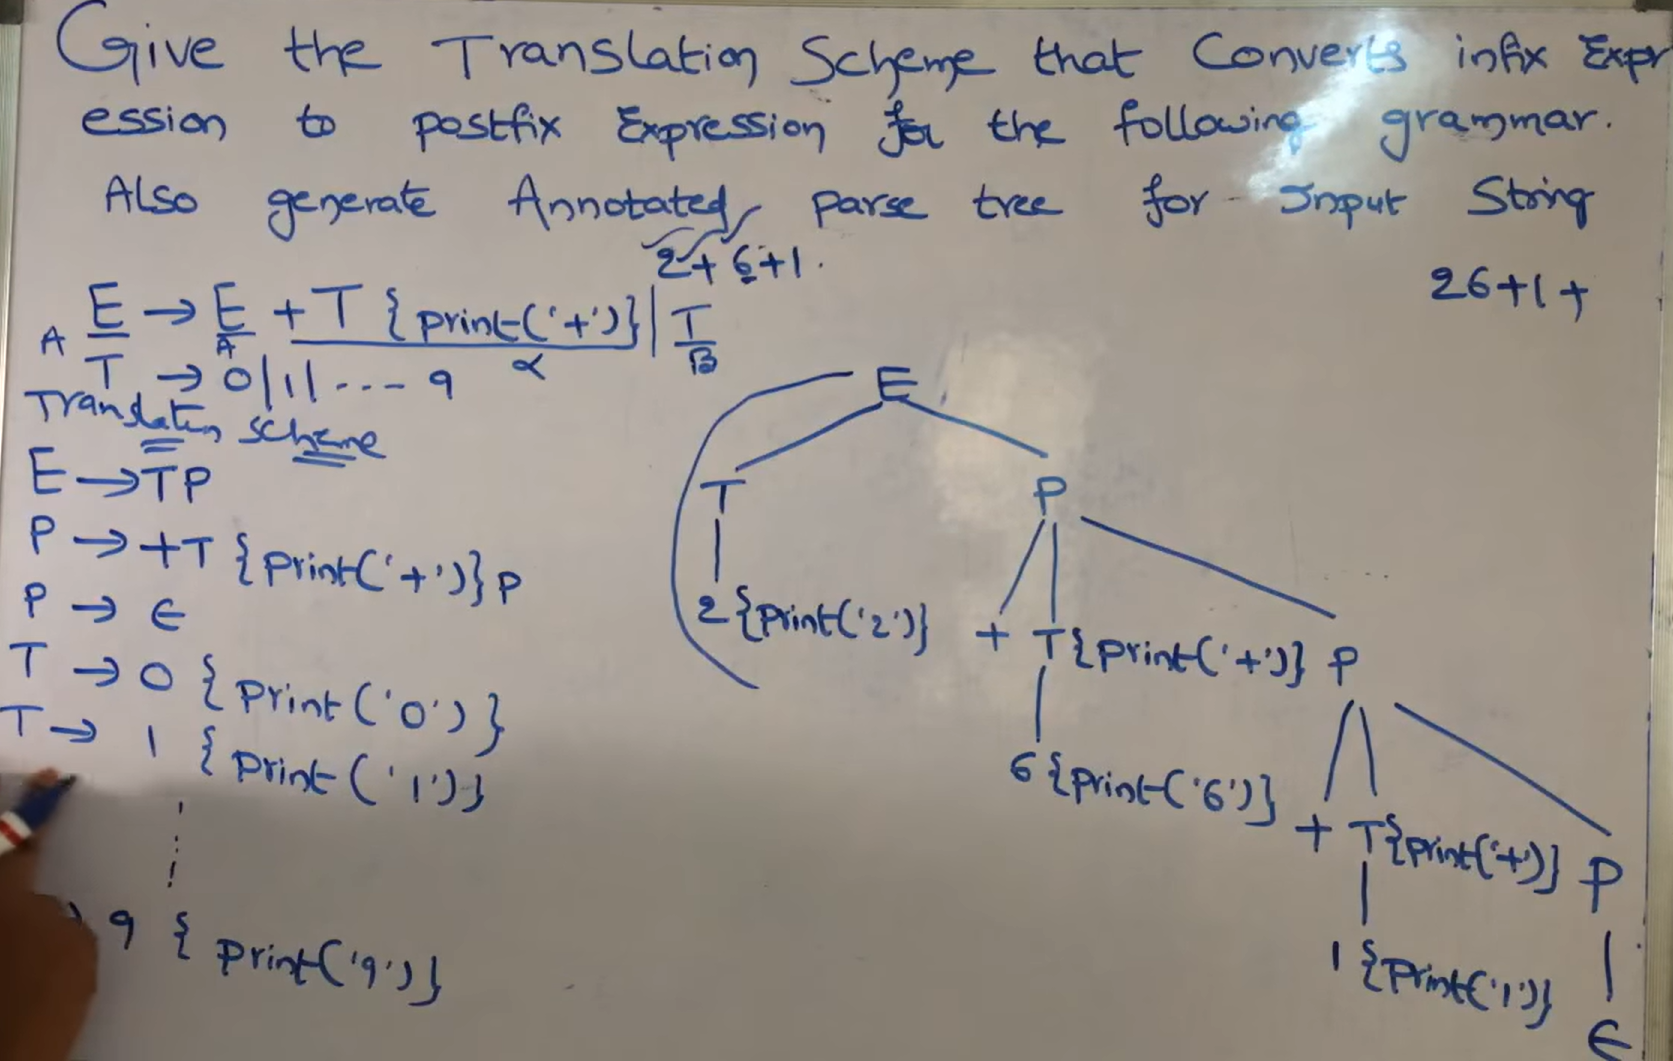 Give the Translation Scheme that Converts infix Expr
ession to postfix Expression for the following grammar.
Also generate Annotated parse tree for Input String
2+6+1.
26+1+
E → E + T {print('+')} | T
A A α B
T → 0|1|---9
Translation scheme
E → TP
P → +T {print('+')} P
P → ϵ
T → 0 {print('0')}
T → 1 {print('1')}
9 {print('9')}
E
T P
2 {print('2')} + T {print('+')} P
6 {print('6')} + T {print('+')} P
1 {print('1')} ϵ